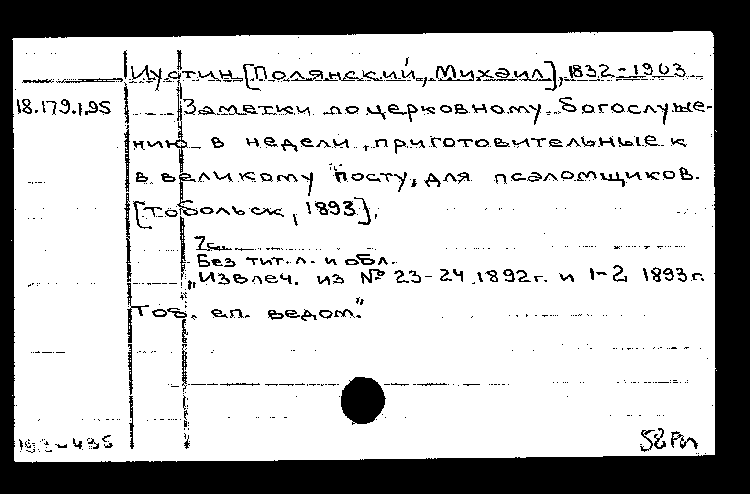 Иустин [Полянский, Михаил], 1832-1903
18.179.1.95 Заметки по церковному богослуже-
нию в недели, приготовительные к
в великому посту, для псаломщиков.
[Тобольск, 1893].
7с.
Без тит. л. и обл.
"Извлеч. из № 23-24 1892г. и 1-2 1893г.
Тоб. еп. ведом."